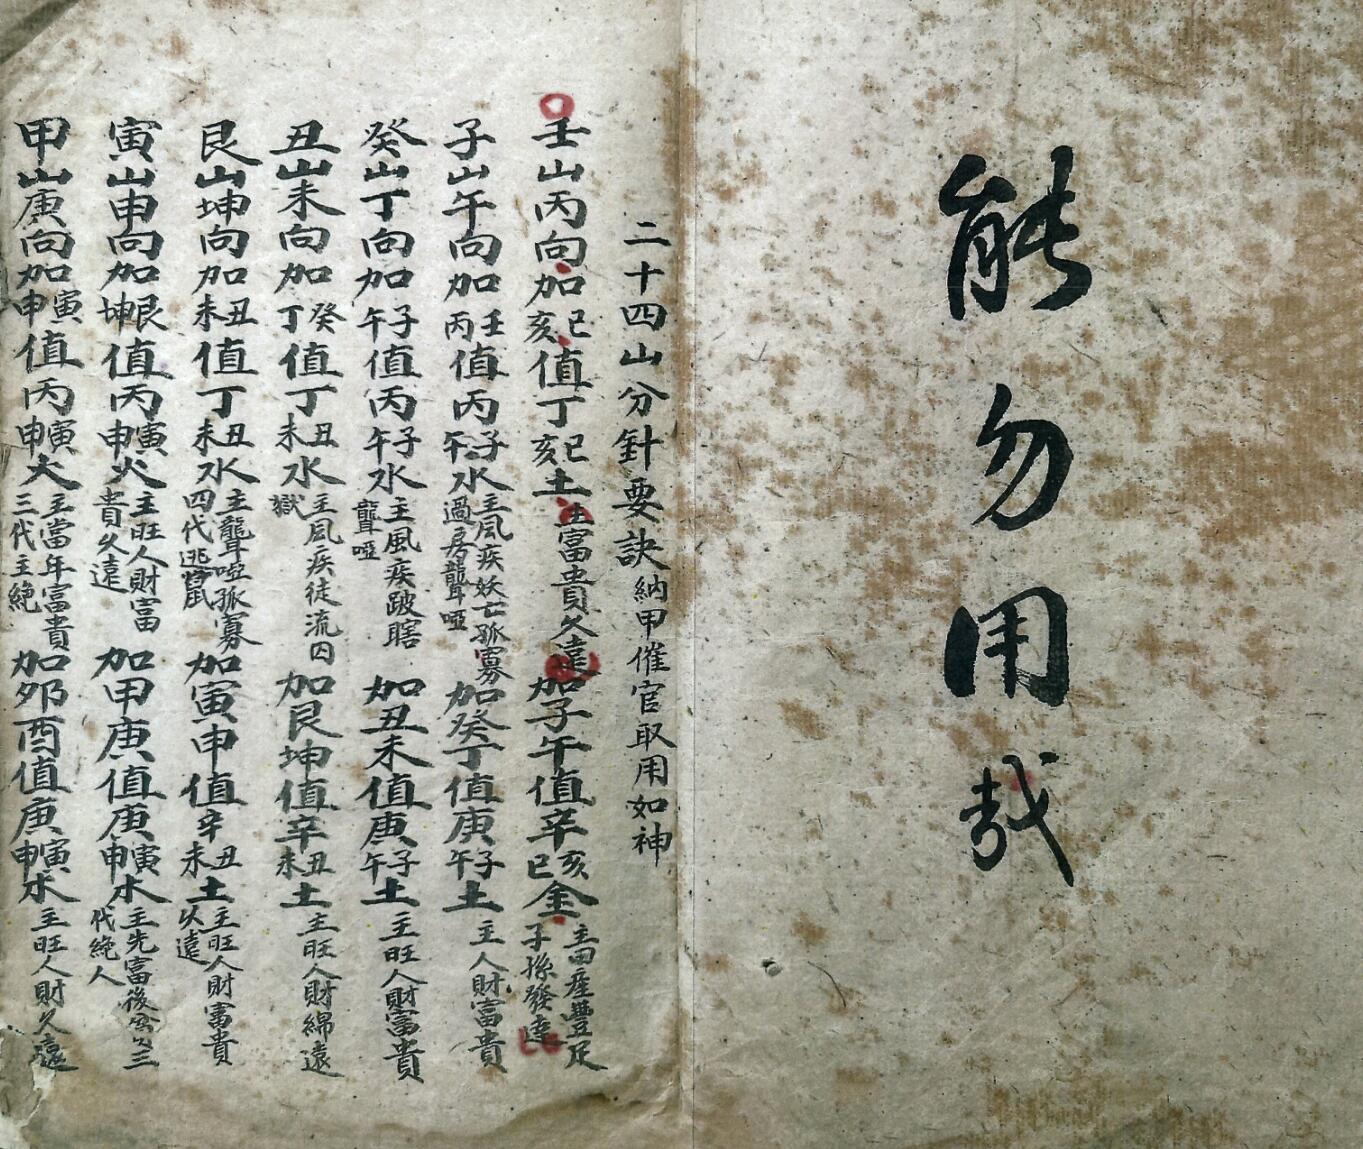 能勿用哉
二十四山分針要訣納甲催官取用如神
壬山丙向加巳亥值丁巳亥土主富貴久遠加子午值辛亥巳金主田產豐足子孫發達
子山午向加壬丙值丙子午水主風疾妖亡孤寡過房聾啞加癸丁值庚子午土主人財富貴
癸山丁向加子午值丙子午水主風疾跛瞎聾啞加丑未值庚子午土主旺人財富貴
丑山未向加癸丁值丁丑未水主風疾徒流囚獄加艮坤值辛丑未土主旺人財綿遠
艮山坤向加丑未值丁丑未水主聾啞孤寡四代逃竄加寅申值辛丑未土主旺人財富貴久遠
寅山申向加艮坤值丙寅申火主旺人財富貴久遠加甲庚值庚寅申木主先富後貧三代絕人
甲山庚向加寅申值丙寅申火主當年富貴三代主絕加夘酉值庚寅申木主旺人財久遠